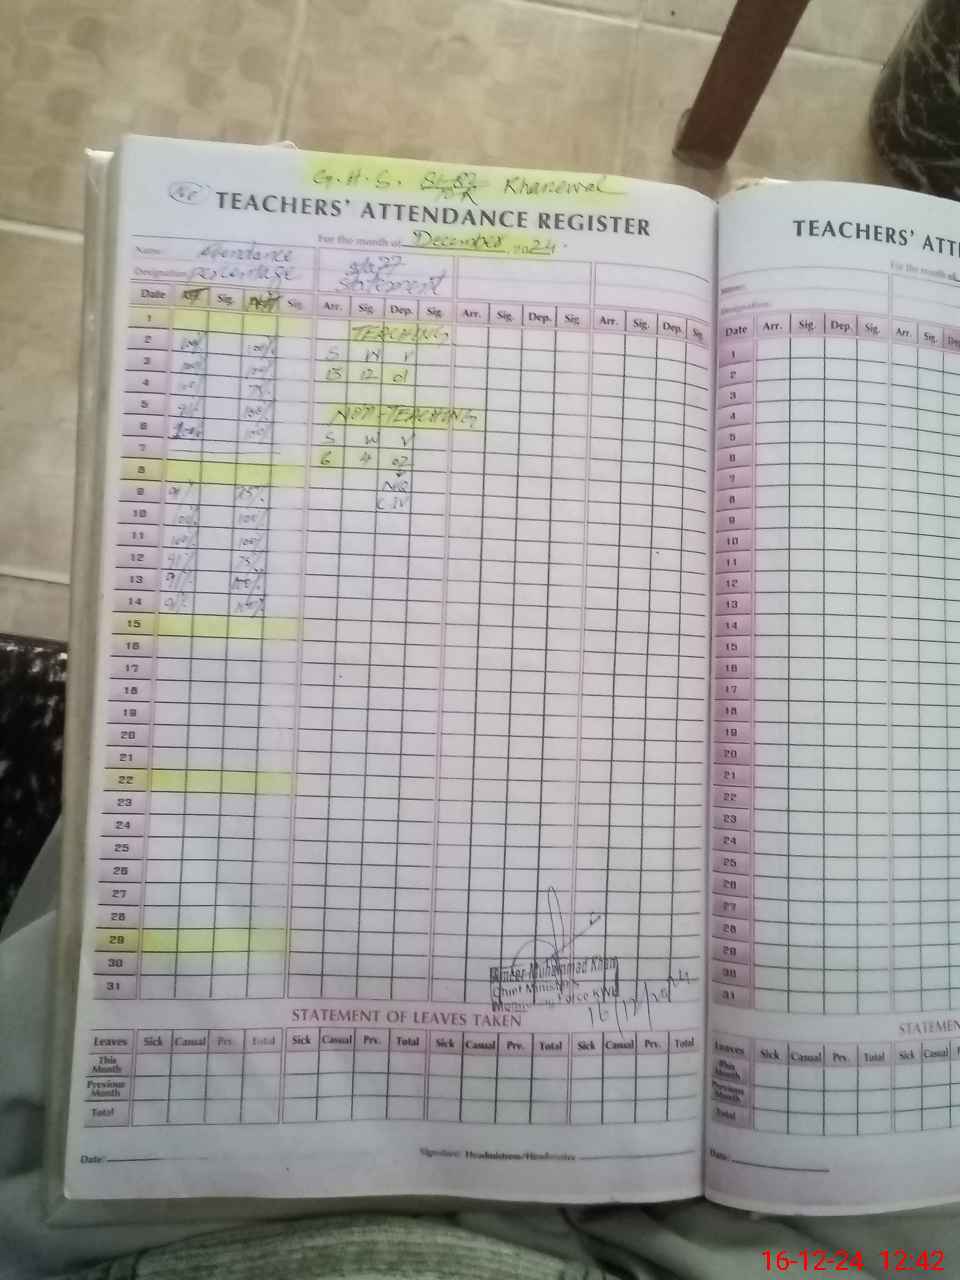 G.H.S. 81-82/10R Khanewal
TEACHERS' ATTENDANCE REGISTER
For the month of December, 2024.
Name: Attendance
Designation: percentage
staff
statement
Date Sig. Sig. Arr. Sig. Dep. Sig. Arr. Sig. Dep. Sig. Arr. Sig. Dep. Sig.
1 TEACHING
2 100% 100% S W V
3 100% 100% 13 12 01
4 100% 75%
5 91% 100% NON-TEACHING
6 100% 100% S W V
7 6 4 02
8 N/Q
9 91% 75% C IV
10 100% 100%
11 100% 100%
12 91% 75%
13 91% 100%
14 91% 100%
15
16
17
18
19
20
21
22
23
24
25
26
27
28
29
30
31
Ameer Muhammad Khan
Chief Minister's
Monitoring Force KWL
16/12/2024
STATEMENT OF LEAVES TAKEN
Leaves Sick Casual Prv. Total Sick Casual Prv. Total Sick Casual Prv. Total Sick Casual Prv. Total
This Month
Previous Month
Total
Date: Signature: Headmistress/Headmaster
TEACHERS' ATT
For the month of
Name:
Designation:
Date Arr. Sig. Dep. Sig. Arr. Sig. De
1
2
3
4
5
6
7
8
9
10
11
12
13
14
15
16
17
18
19
20
21
22
23
24
25
26
27
28
29
30
31
STATEMEN
Leaves Sick Casual Prv. Total Sick Casual
This Month
Previous Month
Total
Date:
16-12-24 12:42